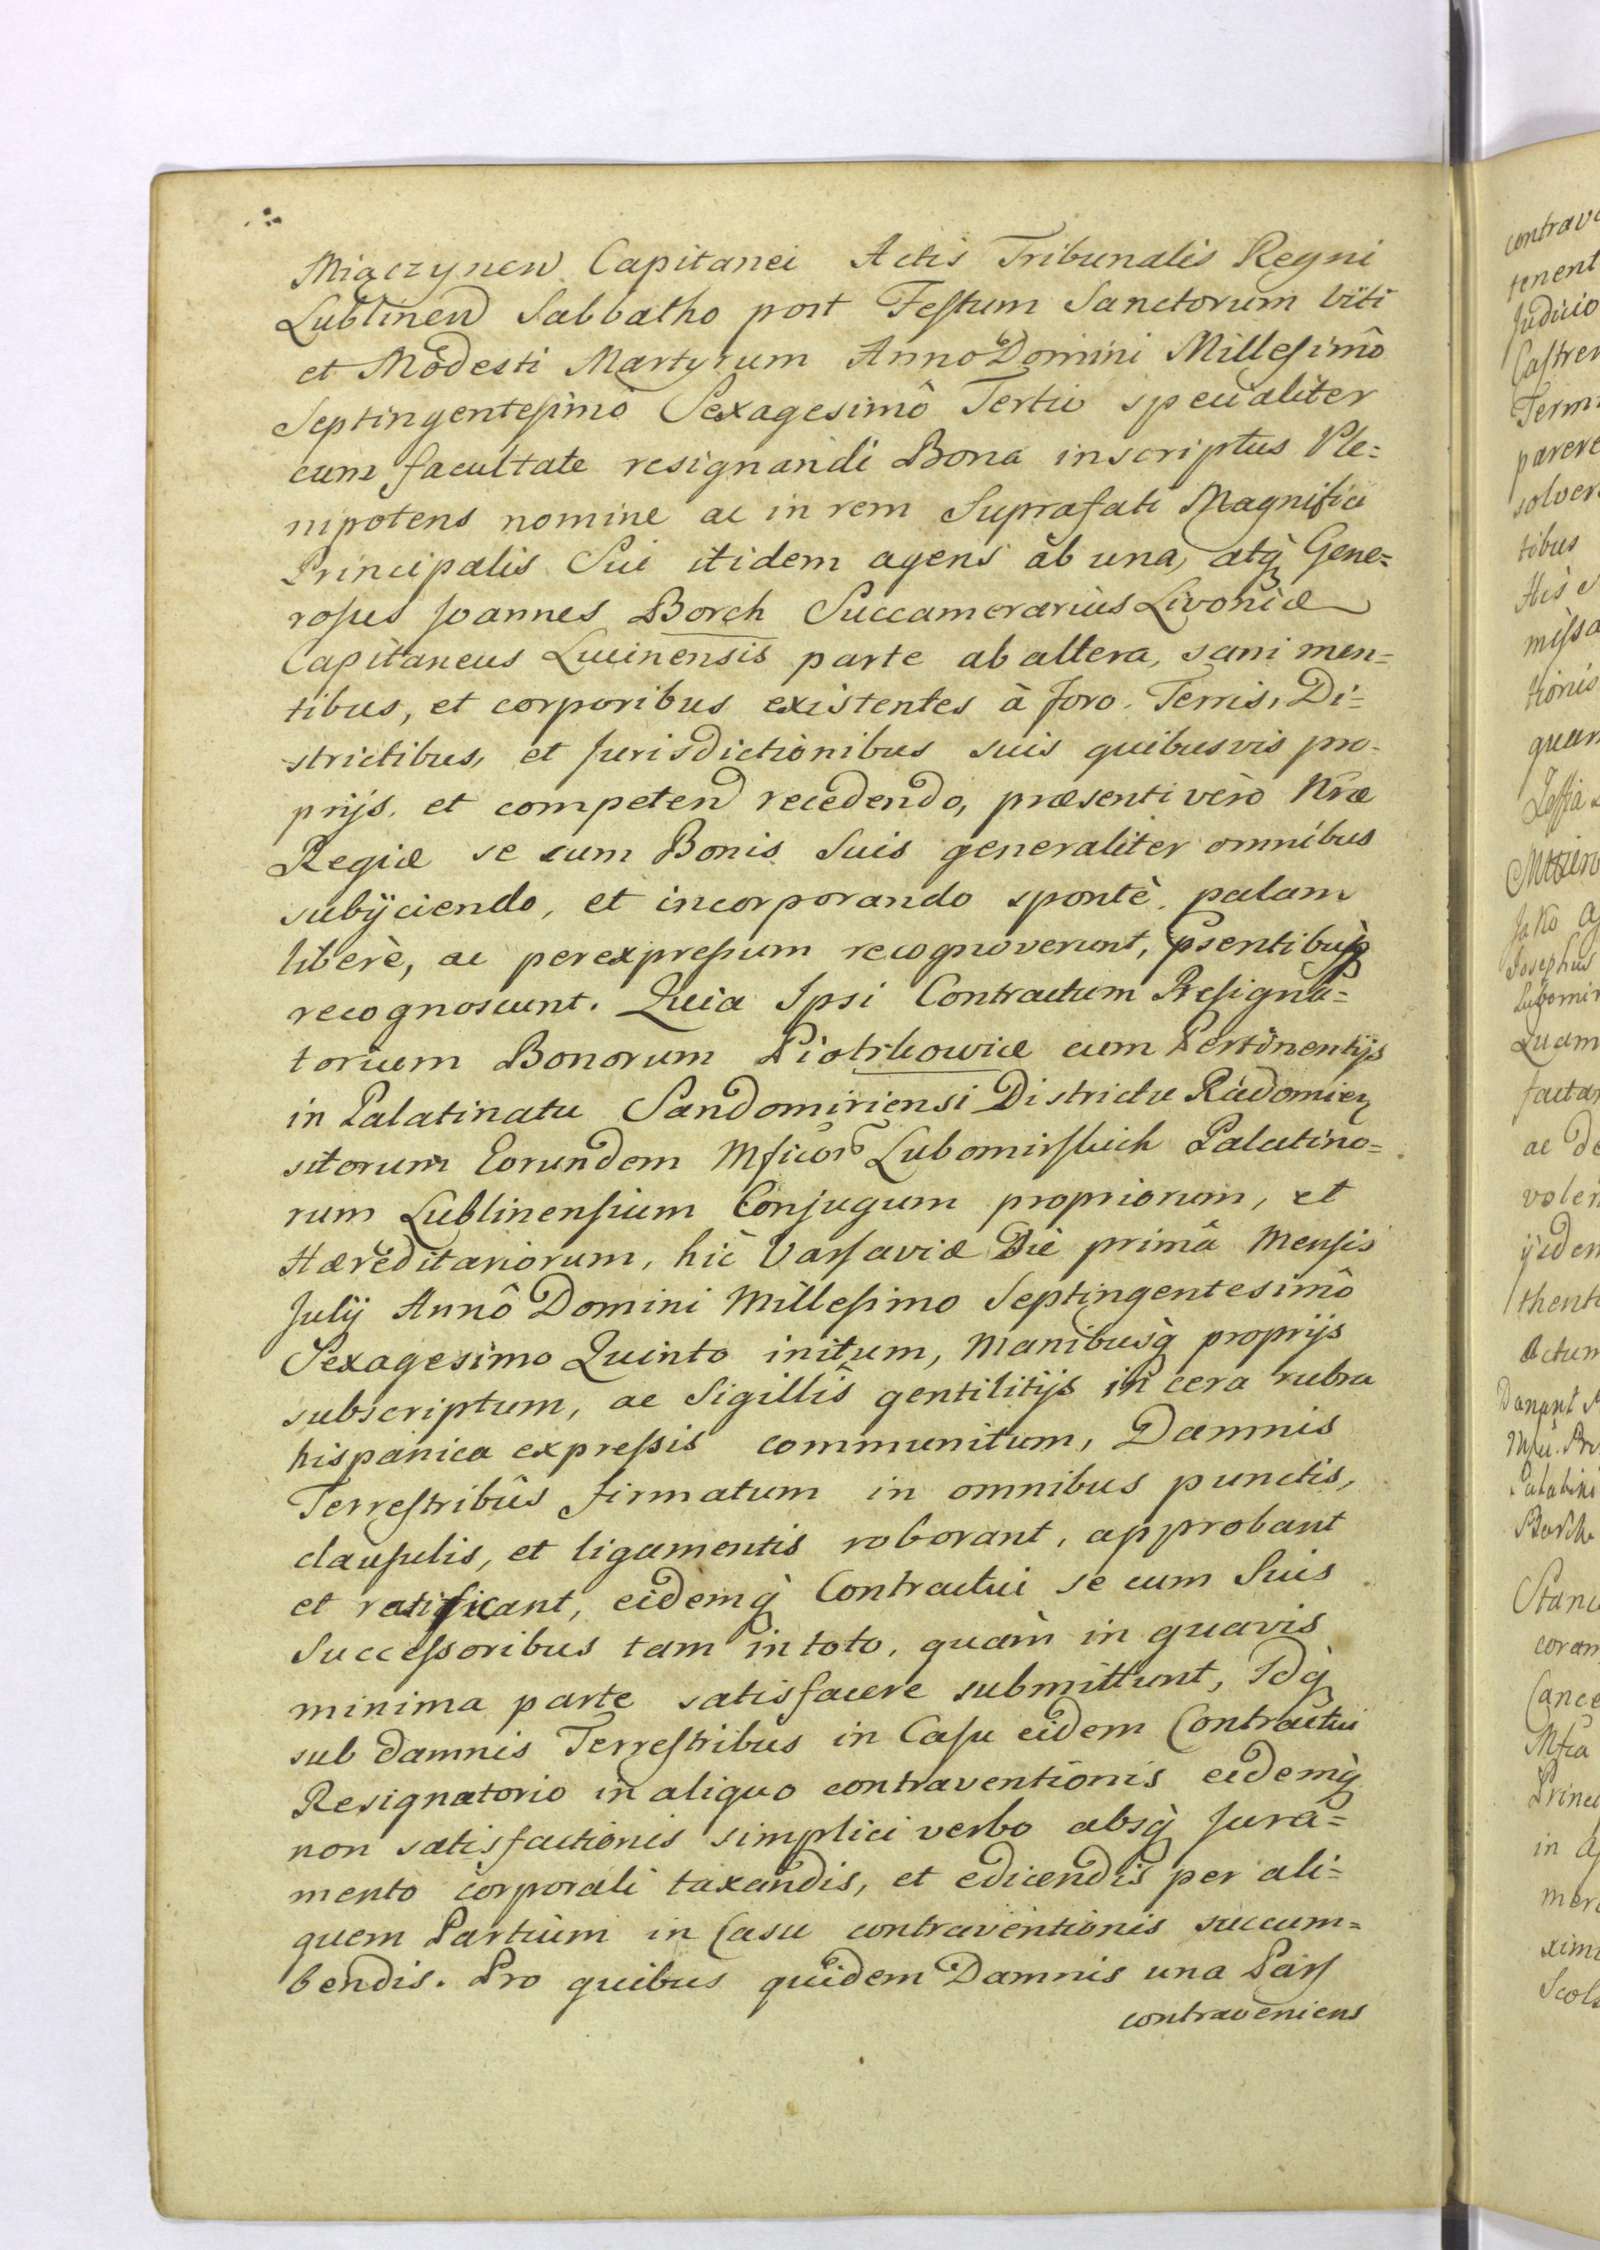 Miączynen Capitanei Actis Tribunalis Regni
Lublinen Sabbatho post Festum Sanctorum Viti
et Modesti Martyrum Anno Domini Millesimô
Septingentesimô Sexagesimô Tertio specialiter
cum facultate resignandi Bona inscriptus Ple=
nipotens nomine ac in rem Suprafati Magnifici
Principalis Sui itidem agens ab una, atq̀ Gene=
rosus Joannes Borch Succamerarius Livoniæ
Capitaneus Lucinensis parte ab altera, sani men=
tibus, et corporibus existentes à foro. Terris, Di=
strictibus, et Jurisdictionibus suis quibusvis pro-
prijs. et competen recedendo, præsenti verò Nræ
Regiæ se cum Bonis Suis generaliter omnibus
subijciendo, et incorporando spontè. palam
liberè, ac perexpressum recognoverunt, psentibusq̀
recognoscunt. Quia Ipsi Contractum Resigna=
torium Bonorum Piotrkowice cum Pertinentijs
in Palatinatu Sandomiriensi Districtu Radomien
sitorum Eorundem Mficor Lubomirskich Palatino=
rum Lublinensium Conjugum propriorum, et
Hæreditariorum, hic Varsaviæ Die primâ Mensis
Julij Annô Domini Millesimo Septingentesimô
Sexagesimo Quinto initum, Manibusq̀ proprijs
subscriptum, ac Sigillis gentilitijs in cera rubra
hispanica expressis communitum, Damnis
Terrestribûs firmatum in omnibus punctis,
clausulis, et ligamentis roborant, approbant
et ratificant, eidemq̀ Contractui se cum Suis
Successoribus tam in toto, quàm in quavis
minima parte satisfacere submittunt, Idq̀
sub damnis Terrestribus in Casu eidem Contractui
Resignatorio in aliquo contraventionis eidemq̀
non satisfactionis simplici verbo absq̀ Jura=
mento corporali taxandis, et edicendis per ali=
quem Partium in Casu contraventionis succum=
bendis. Pro quibus quidem Damnis una Pars
contraveniens